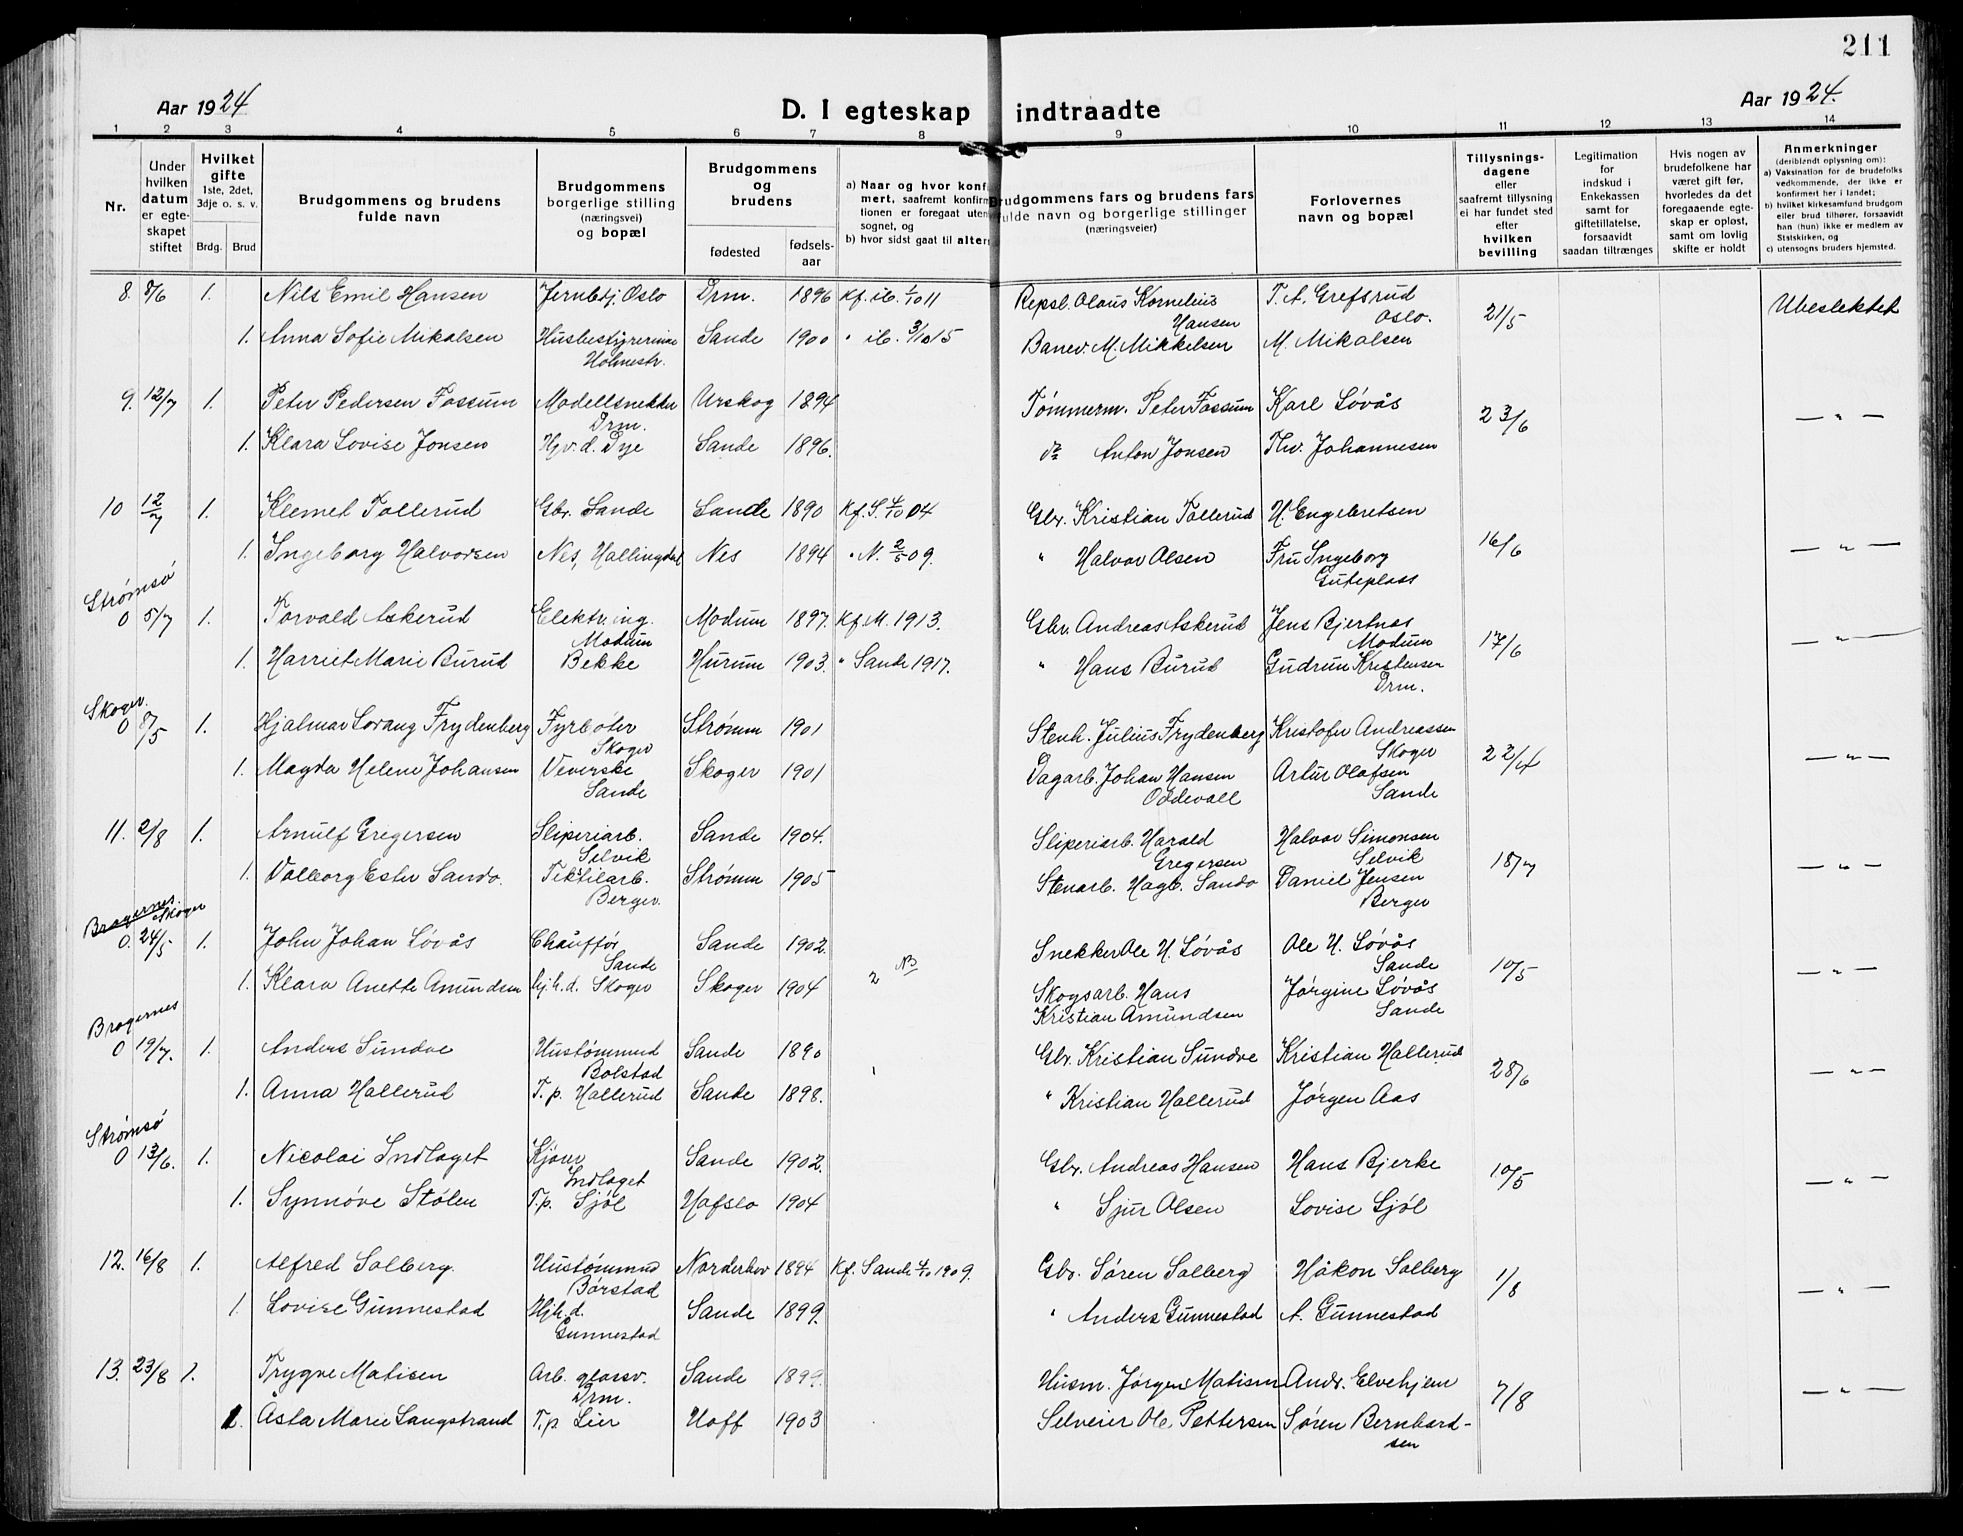 211
Aar 1924
D. I egteskap indtraadte
Aar 1924.
1 2 3 4 5 6 7 8 9 10 11 12 13 14
Nr.
Under hvilken datum er egteskapet stiftet
Hvilket gifte 1ste, 2det, 3dje o. s. v.
Brdg. Brud
Brudgommens og brudens fulde navn
Brudgommens borgerlige stilling (næringsvei) og bopæl
Brudgommens og brudens
fødested fødsels-aar
a) Naar og hvor konf
mert, saafremt konfirm
tionen er foregaat uten
sognet, og
b) hvor sidst gaat til alter
Brudgommens fars og brudens fars fulde navn og borgerlige stillinger (næringsveier)
Forlovernes navn og bopæl
Tillysnings-dagene eller saafremt tillysning ei har fundet sted efter hvilken bevilling
Legitimation for indskud i Enkekassen samt for giftetillatelse, forsaavidt saadan tiltrænges
Hvis nogen av brudefolkene har været gift før, hvorledes da det foregaaende egteskap er opløst, samt om lovlig skifte er holdt
Anmerkninger
(deriblandt oplysning om):
a) Vaksination for de brudefolks vedkommende, der ikke er konfirmert her i landet;
b) hvilket kirkesamfund brudgom eller brud tilhører, forsaavidt han (hun) ikke er medlem av Statskirken, og
c) utensogns bruders hjemsted.
8. 8/6 1. Nils Emil Hansen Jernbdj Oslo Drm. 1896 Kf. ib. 1/10 11 Repsl. Olaus Kornelius Hansen T. A. Grefsrud Oslo. 21/5 Ubeslektet
1. Anna Sofie Mikalsen Husbestyrerinne Holmestr. Sande 1900 " ib. 3/10 15 Banev. M. Mikkelsen M. Mikalsen
9. 12/7 1. Peter Pedersen Fossum Modellsnekker Drm. Urskog 1894 Tømmerm. Peter Fossum Karl Løvås 23/6 — " —
1. Klara Lovise Jonsen Hjv. d. Dye Sande 1896. do Anton Jonsen Thv. Johannesen
10 12/7 1. Klemet Tollerud Gbr. Sande Sande 1890 Kf. S. 4/10 04 Gbr. Kristian Tollerud H. Engebretsen 16/6 — " —
1. Ingeborg Halvorsen Nes, Hallingdal Nes 1894 " N. 2/5 09. " Halvor Olsen Fru Ingeborg Guteplass
Strømsø
0 5/7 1. Torvald Askerud Elektr. ing. Modum Modum 1897. Kf. M. 1913. Gbr. Andreas Askerud Jens Bjertnæs Modum 17/6 — " —
1. Harriet Marie Burud Bekke Hurum 1903. " Sande 1917. " Hans Burud Gudrun Kristensen Drm.
Skoger.
0 8/5 1. Hjalmar Lorang Frydenberg Fyrbøter Skoger Strømm 1901 Stenh. Julius Frydenberg Kristofer Andreassen Skoger 22/4 — " —
1. Magda Helene Johansen Veverske Sande Skoger 1901 Dagarb. Johan Hansen Oddevall Artur Olafsen Sande
11. 2/8 1. Arnulf Gregersen Sliperiarb. Selvik Sande 1904. Sliperiarb. Harald Gregersen Halvor Simonsen Selvik 18/7 — " —
1. Valborg Ester Sando. Tekstilarb. Berger. Strømm 1905 Stenarb. Hagb. Sando Daniel Jensen Berger
Bragernes. Skoger
0. 24/5 1. John Johan Løvås Chauffør Sande Sande 1902. Snekker Ole H. Løvås Ole H. Løvås Sande 10/5 — " —
1. Klara Anette Amundsen hj.h.d. Skoger Skoger 1904 2 NB Skogsarb. Hans Kristian Amundsen Jørgine Løvås Sande
Bragernes
0 19/7. 1. Anders Sundve Hustømmerm Bolstad Sande 1890 Gbr. Kristian Sundve Kristian Hallerud 28/6 — " —
1. Anna Hallerud T. p. Hallerud Sande 1898. " Kristian Hallerud Jørgen Aas
Strømsø
0 13/6. 1. Nicolai Indlaget Kjører Indlaget Sande 1902. Gbr. Andreas Hansen Hans Bjerke 10/5 — " —
1. Synnøve Stølen T.p. Sjøl Hafslo 1904 " Sjur Olsen Lovise Sjøl
12. 16/8 1. Alfred Solberg. Hustømmerm Børstad Norderhov 1894 Kf. Sande 4/10 1909. Gbr. Søren Solberg Håkon Solberg 1/8 — " —
1. Lovise Gunnestad Hjh.d. Gunnestad Sande 1899. " Anders Gunnestad A. Gunnestad
13. 23/8 1. Trygve Matisen Arb. glassv. Drm. Sande 1899. Husm. Jørgen Matisen Andr. Elvehjem 7/8 — " —
1. Asta Marie Langstrand T.p. Lier Hoff 1903 Selveier Ole Pettersen Søren Bernhard-sen